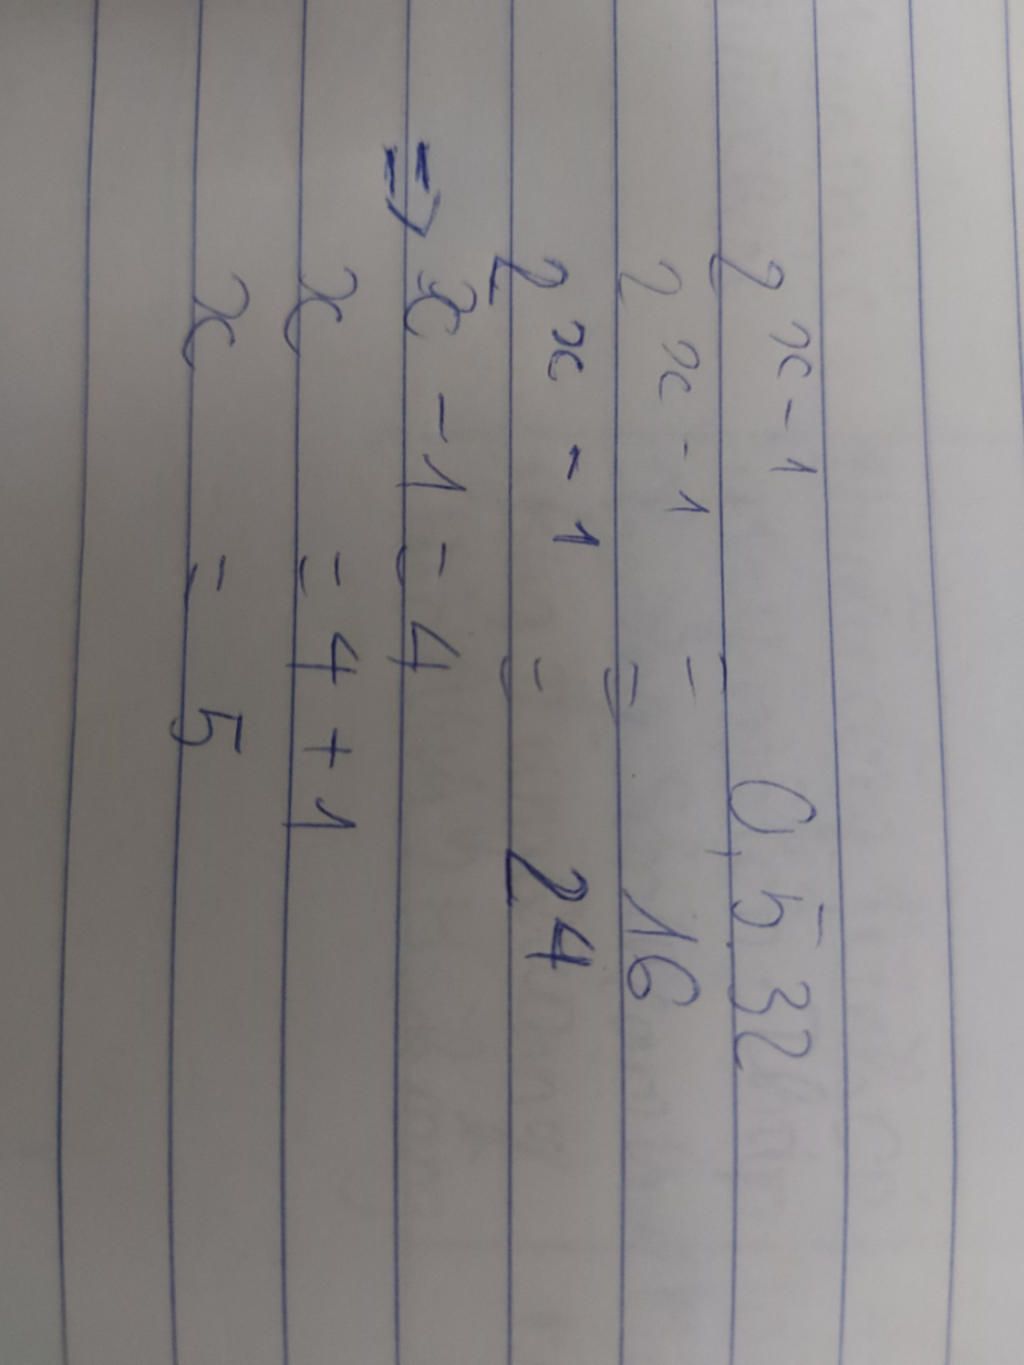 2^x-1 = 0,5.32
2^x-1 = 16
2^x-1 = 2^4
=> x - 1 = 4
x = 4 + 1
x = 5